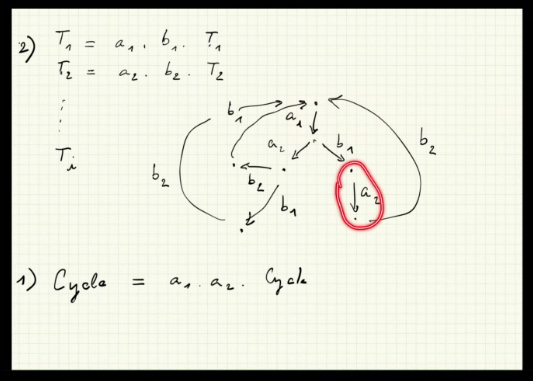 2) T₁ = a₁ . b₁ . T₁
T₂ = a₂ . b₂ . T₂
⋮
Tᵢ
b₁
a₁
a₂
b₁
b₂
b₂
b₂
a₂
b₁
1) Cycle = a₁ . a₂ . Cycle